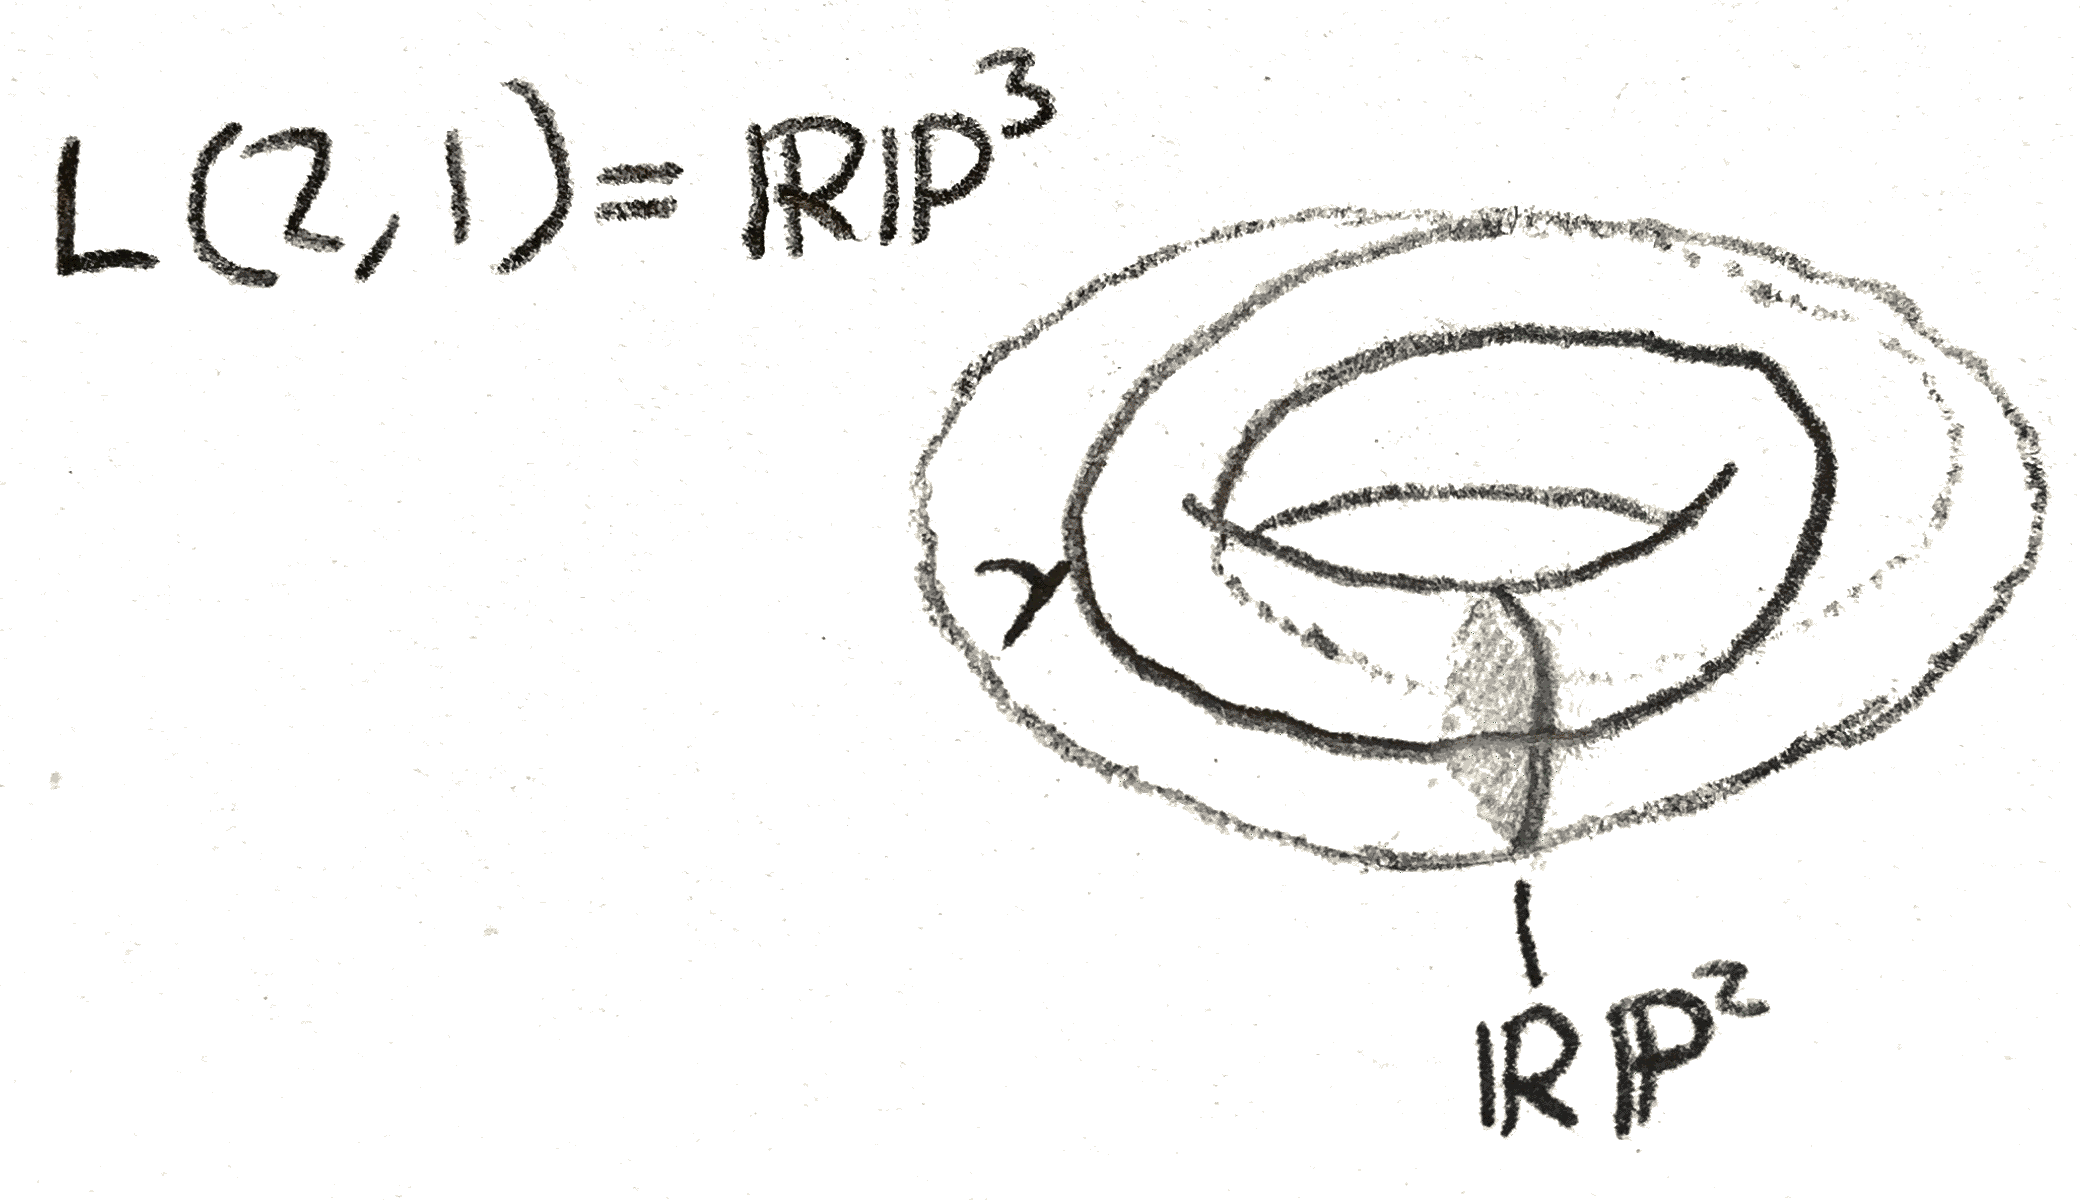 L(2,1)=ℝℙ³
γ
ℝℙ²